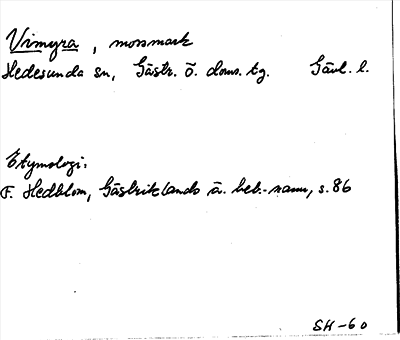 Vimyra, mossmark
Hedesunda sn, Gästr. ö. doms. tg. Gävl. l.
Etymologi:
F. Hedblom, Gästriklands ä. beb.-namn, s. 86
SH-60